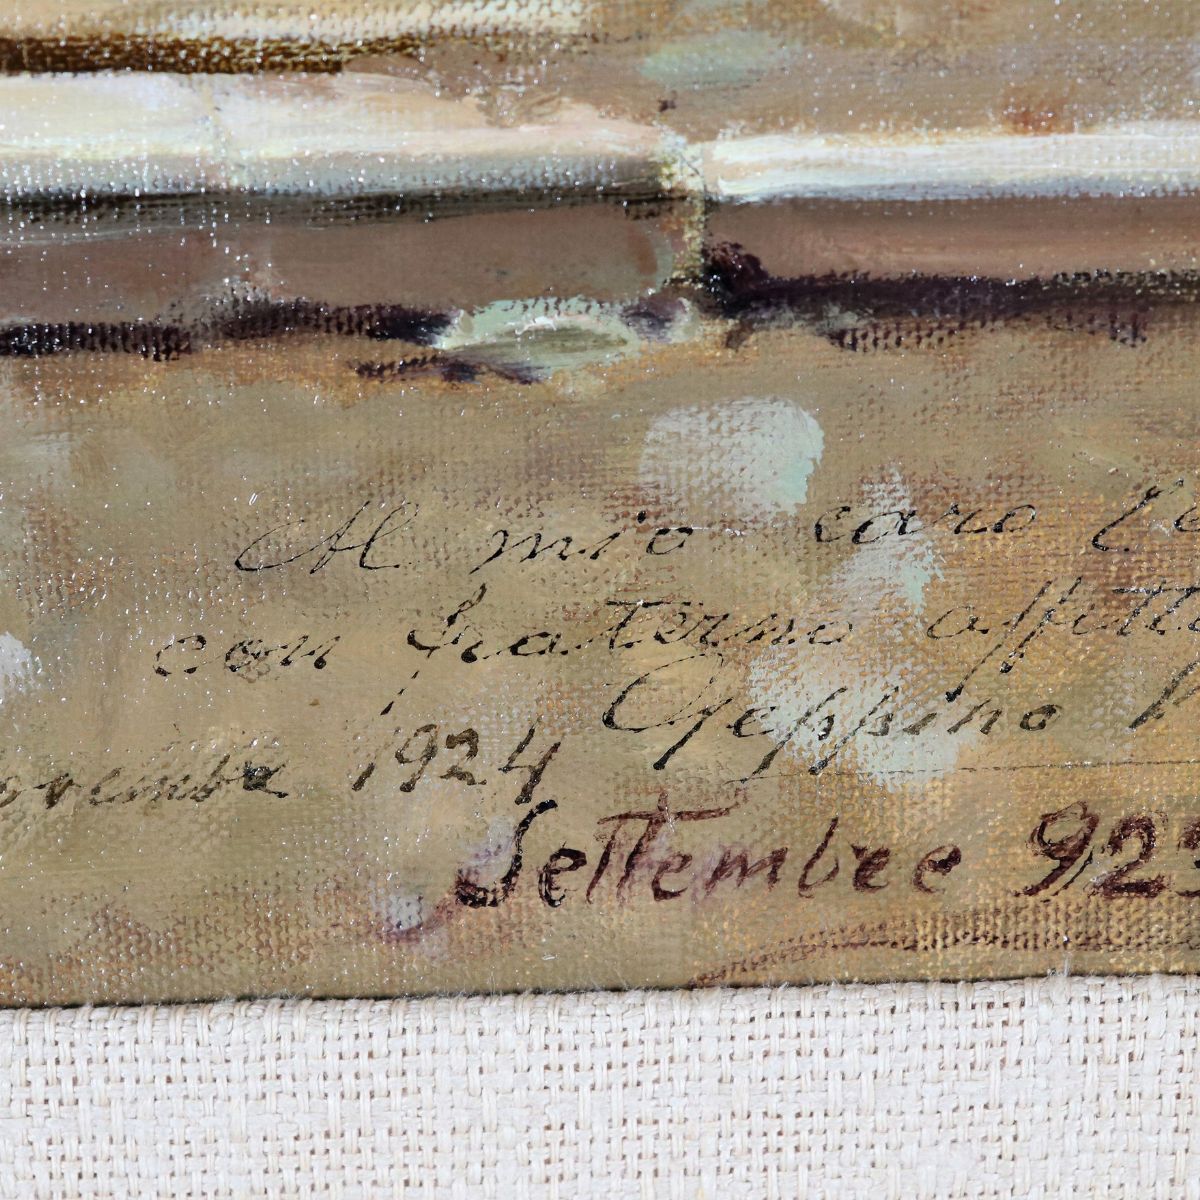 Al mio caro
con fraterno affetto
Geppino
Novembre 1924
Settembre 923